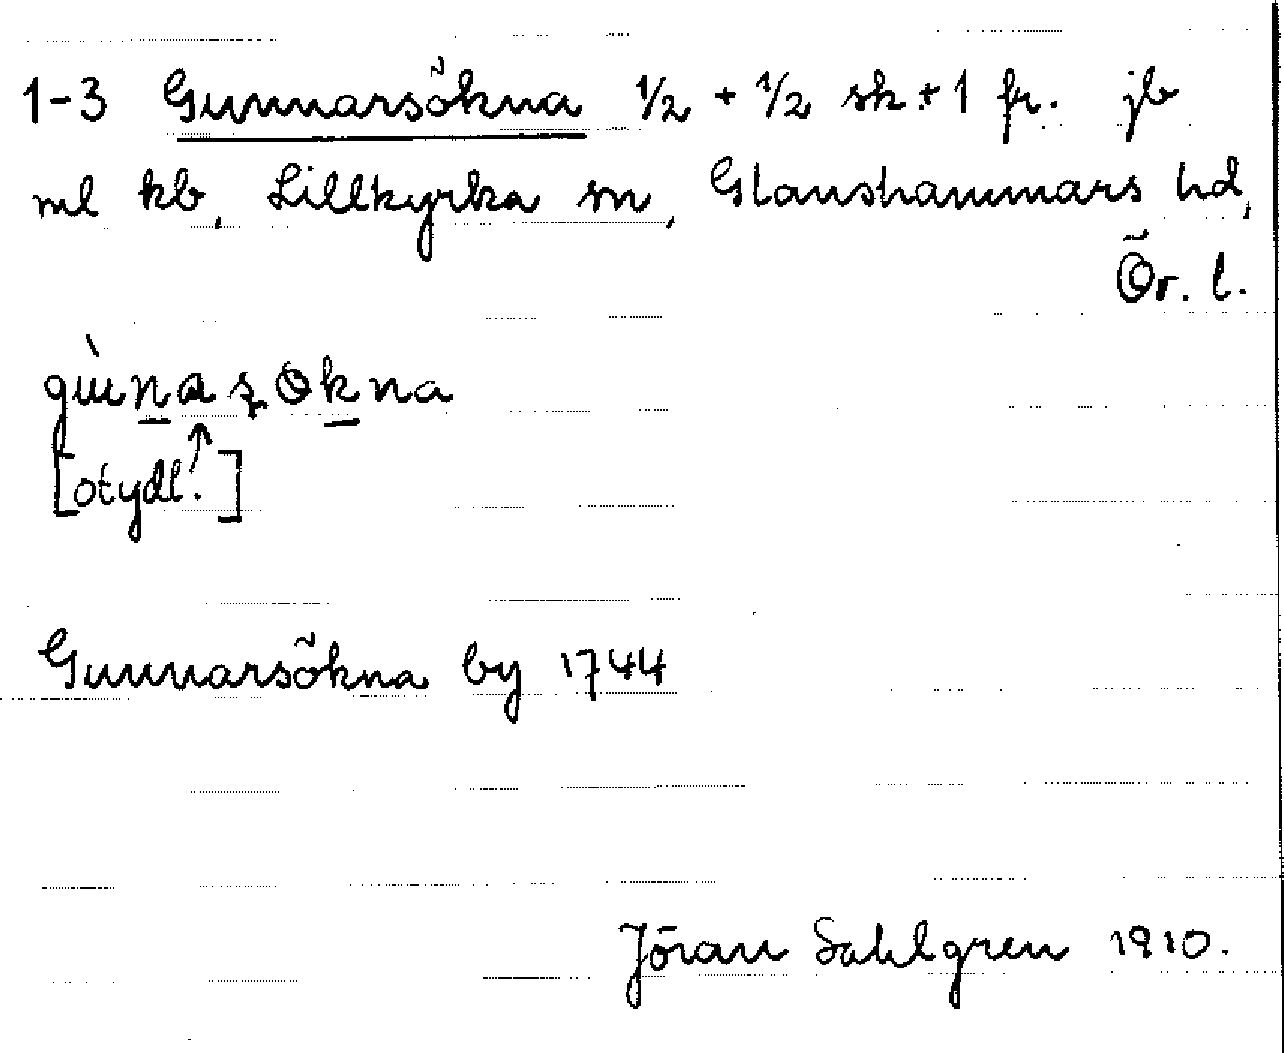 1-3 Gunnarsökna 1/2 + 1/2 sk + 1 fr. jb
ml kb, Lillkyrka sn, Glanshammars hd,
Ör. l.
[otydl.]
Gunnarsökna by 1744
Jöran Sahlgren 1910.